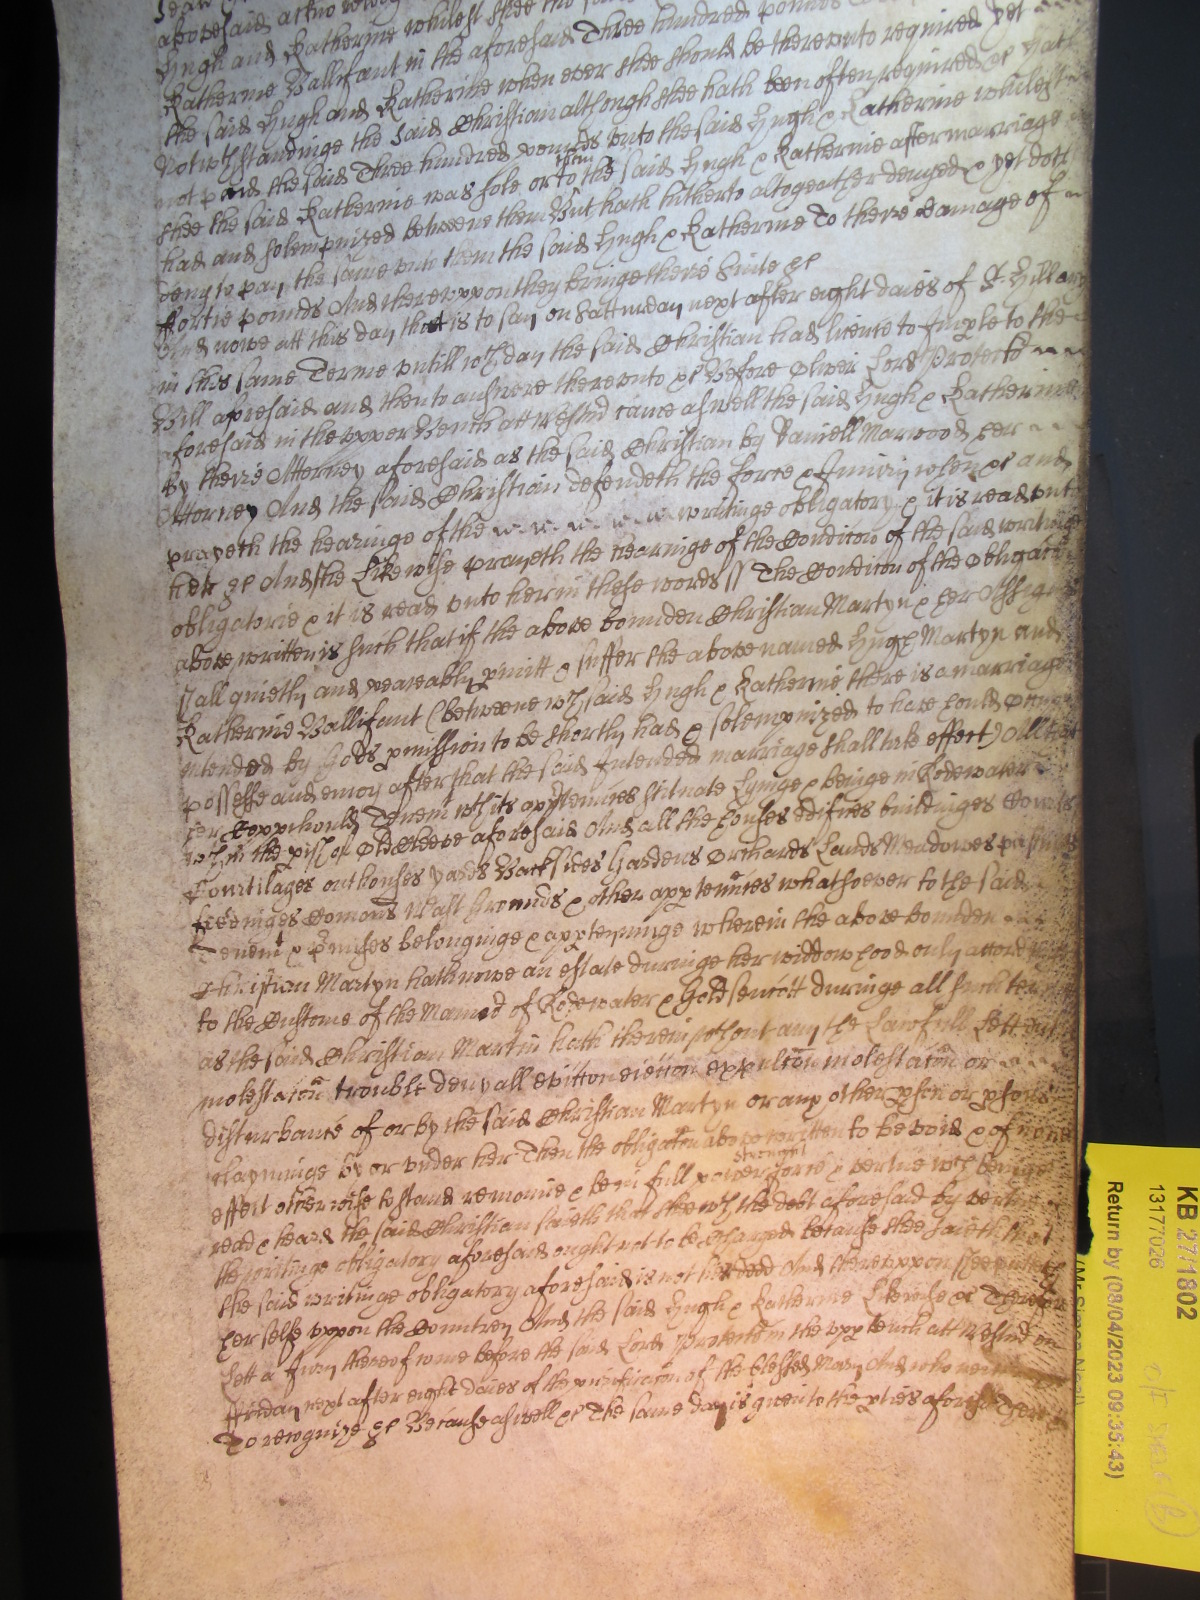 abovesaid acknowledg
Hugh and Katherine whilest shee the
Katherine Vallifant in the aforesaid Three hundred pounds
the said Hugh and Katherine when ever shee should be therevnto required yet
Notwthstandinge the said Christian although shee hath been often required &c hath
not paid the said Three hundred pounds vnto the said Hugh & Katherine whilest
shee the said Katherine was sole or to the said Hugh & Katherine after marriage
had and solempnized betweene them But hath hitherto altogeather denyed & yet doth
deny to pay the same vnto them the said Hugh & Katherine To theire damage of
ffortie pounds And therevppon they bringe theire Suite &c
And nowe att this day that is to say on Satturday next after eight daies of St Hillary
in this same Terme vntill wch day the said Christian had licence to Imple to the
Bill aforesaid and then to answere therevnto &c Before Oliver Lord Protector
aforesaid in the vpper Bench att Westmr came aswell the said Hugh & Katherine
by theire Attorney aforesaid as the said Christian by Daniell Marwood her
Attorney And the said Christian defendeth the force & Iniury when &c and
prayeth the hearinge of the writinge obligatory & it is read vnto
her &c And she likewise prayeth the hearinge of the Condicon of the said writinge
obligatorie & it is read vnto her in these words // The Condicon of the Obligacon
above written is such that if the above bounden Christian Martyn & her Assignes
shall quietly and peaceably pmitt & suffer the above named Hugh Martyn and
Katherine Vallifant (betweene wch said Hugh & Katherine there is a marriage
intended by Gods pmission to be shortly had & solempnized to have hould occupy
possesse and enioy after that the said Intended marriage shall take effect) All that
her Coppihould Tenemt wth its apptennces scituate lyinge & beinge in Rodewater
wthin the pish of Old Cleeve aforesaid And all the houses edifices buildinges
Courtilages outhouses yards Backsides Gardens Orchards Lands Meadowes pastures
feedinges Comons Wast grounds & other apptennces whatsoever to the said
Tenemt & pmises belonginge & appteyninge wherein the above bounden
Christian Martyn hath nowe an estate duringe her widdowhood only accordinge
to the Custome of the Mannor of Rodewater & Goldsencott duringe all such terme
as the said Christian Martin hath therein wthout any the Lawfull Lett suit
molestacon trouble denyall eviccon eieccon expulcon molestacon or
disturbance of or by the said Christian Martyn or any other pson or psons
clayminge by or vnder her Then the obligacon above written to be void & of none
effect otherwise to stand remaine & be in full power strenght force & vertue wch beinge
read & heard the said Christian saieth that shee wth the debt aforesaid by vertue
the writinge obligatory aforesaid ought not to be charged because shee saieth that
the said writinge obligatory aforesaid is not her deed And therevppon shee putteth
her selfe vppon the Countrey And the said Hugh & Katherine likewise &c Therefore
Lett a Iury thereof come before the said Lord Protector in the vpp bench att Westmr on
ffriday next after eight daies of the purificacon of the blessed Mary And who neither
To recognize &c Because aswell &c The same day is given to the pties aforesaid there
KB 27/1802
13177026
Return by (08/04/2023 09:35:43)